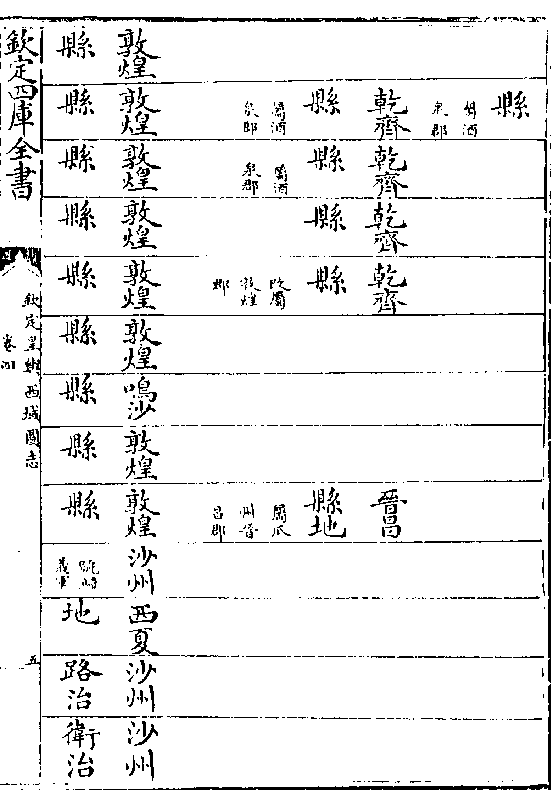 敦煌
縣
縣
屬酒
泉郡
乾齊
縣
屬酒
泉郡
敦煌
縣
乾齊
縣
屬酒
泉郡
敦煌
縣
乾齊
縣
敦煌
縣
乾齊
縣
改屬
敦煌
郡
敦煌
縣
敦煌
縣
鳴沙
縣
敦煌
縣
晉昌
縣地
屬瓜
州晉
昌郡
敦煌
縣
沙州
號歸
義軍
西夏
地
沙州
路治
沙州
衛治
欽定四庫全書
欽定皇輿西域圖志
卷四
五